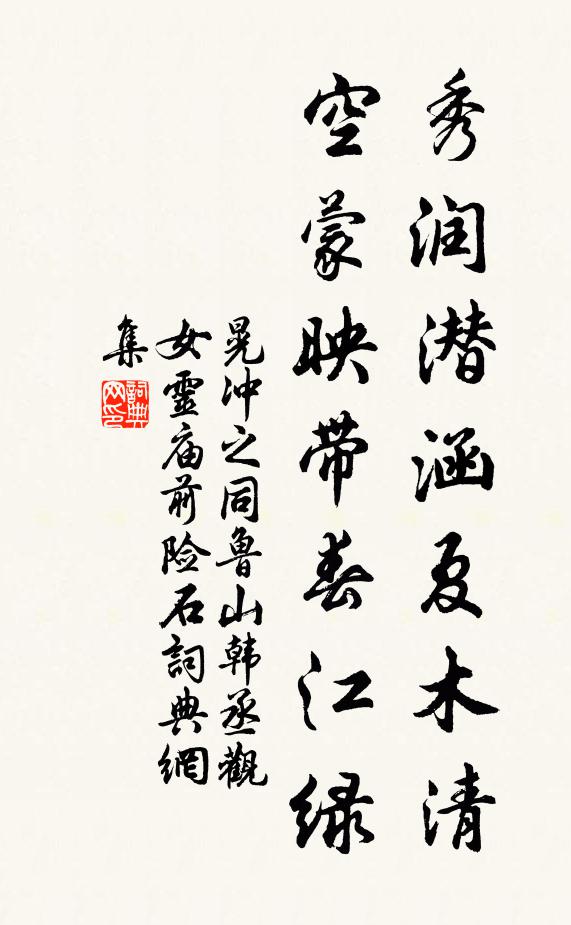 秀润潜涵夏木清
空蒙映带春江绿
晃冲之同鲁山韩丞觀
女靈庙前险石詞典網
集
詞典
网印